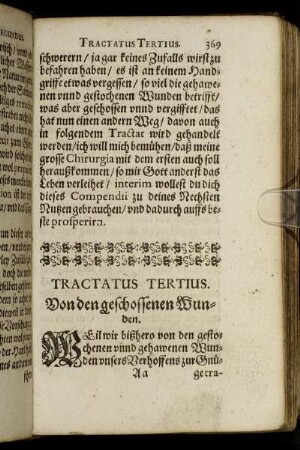 TRACTATUS TERTIUS. 369
schwerern / ja gar keines Zufalls wirst zu
befahren haben / es ist an keinem Hand-
griff etwas vergessen / so viel die gehawe-
nen vnnd gestochenen Wunden betrifft /
was aber geschossen vnnd vergifftet / das
hat nun einen andern Weg / davon auch
in folgendem Tractat wird gehandelt
werden / ich will mich bemühen / daß meine
grosse Chirurgia mit dem ersten auch soll
herauß kommen / so mir Gott anderst das
Leben verleihet / interim wollest du dich
dieses Compendii zu deines Nechsten
Nutzen gebrauchen / vnd dadurch auffs be-
ste prosperira.
TRACTATUS TERTIUS.
Von den geschossenen Wun-
den.
WEil wir bißhero von den gesto-
chenen vnnd gehawenen Wun-
den vnsers Verhoffens zur Gnü-
Aa ge tra-